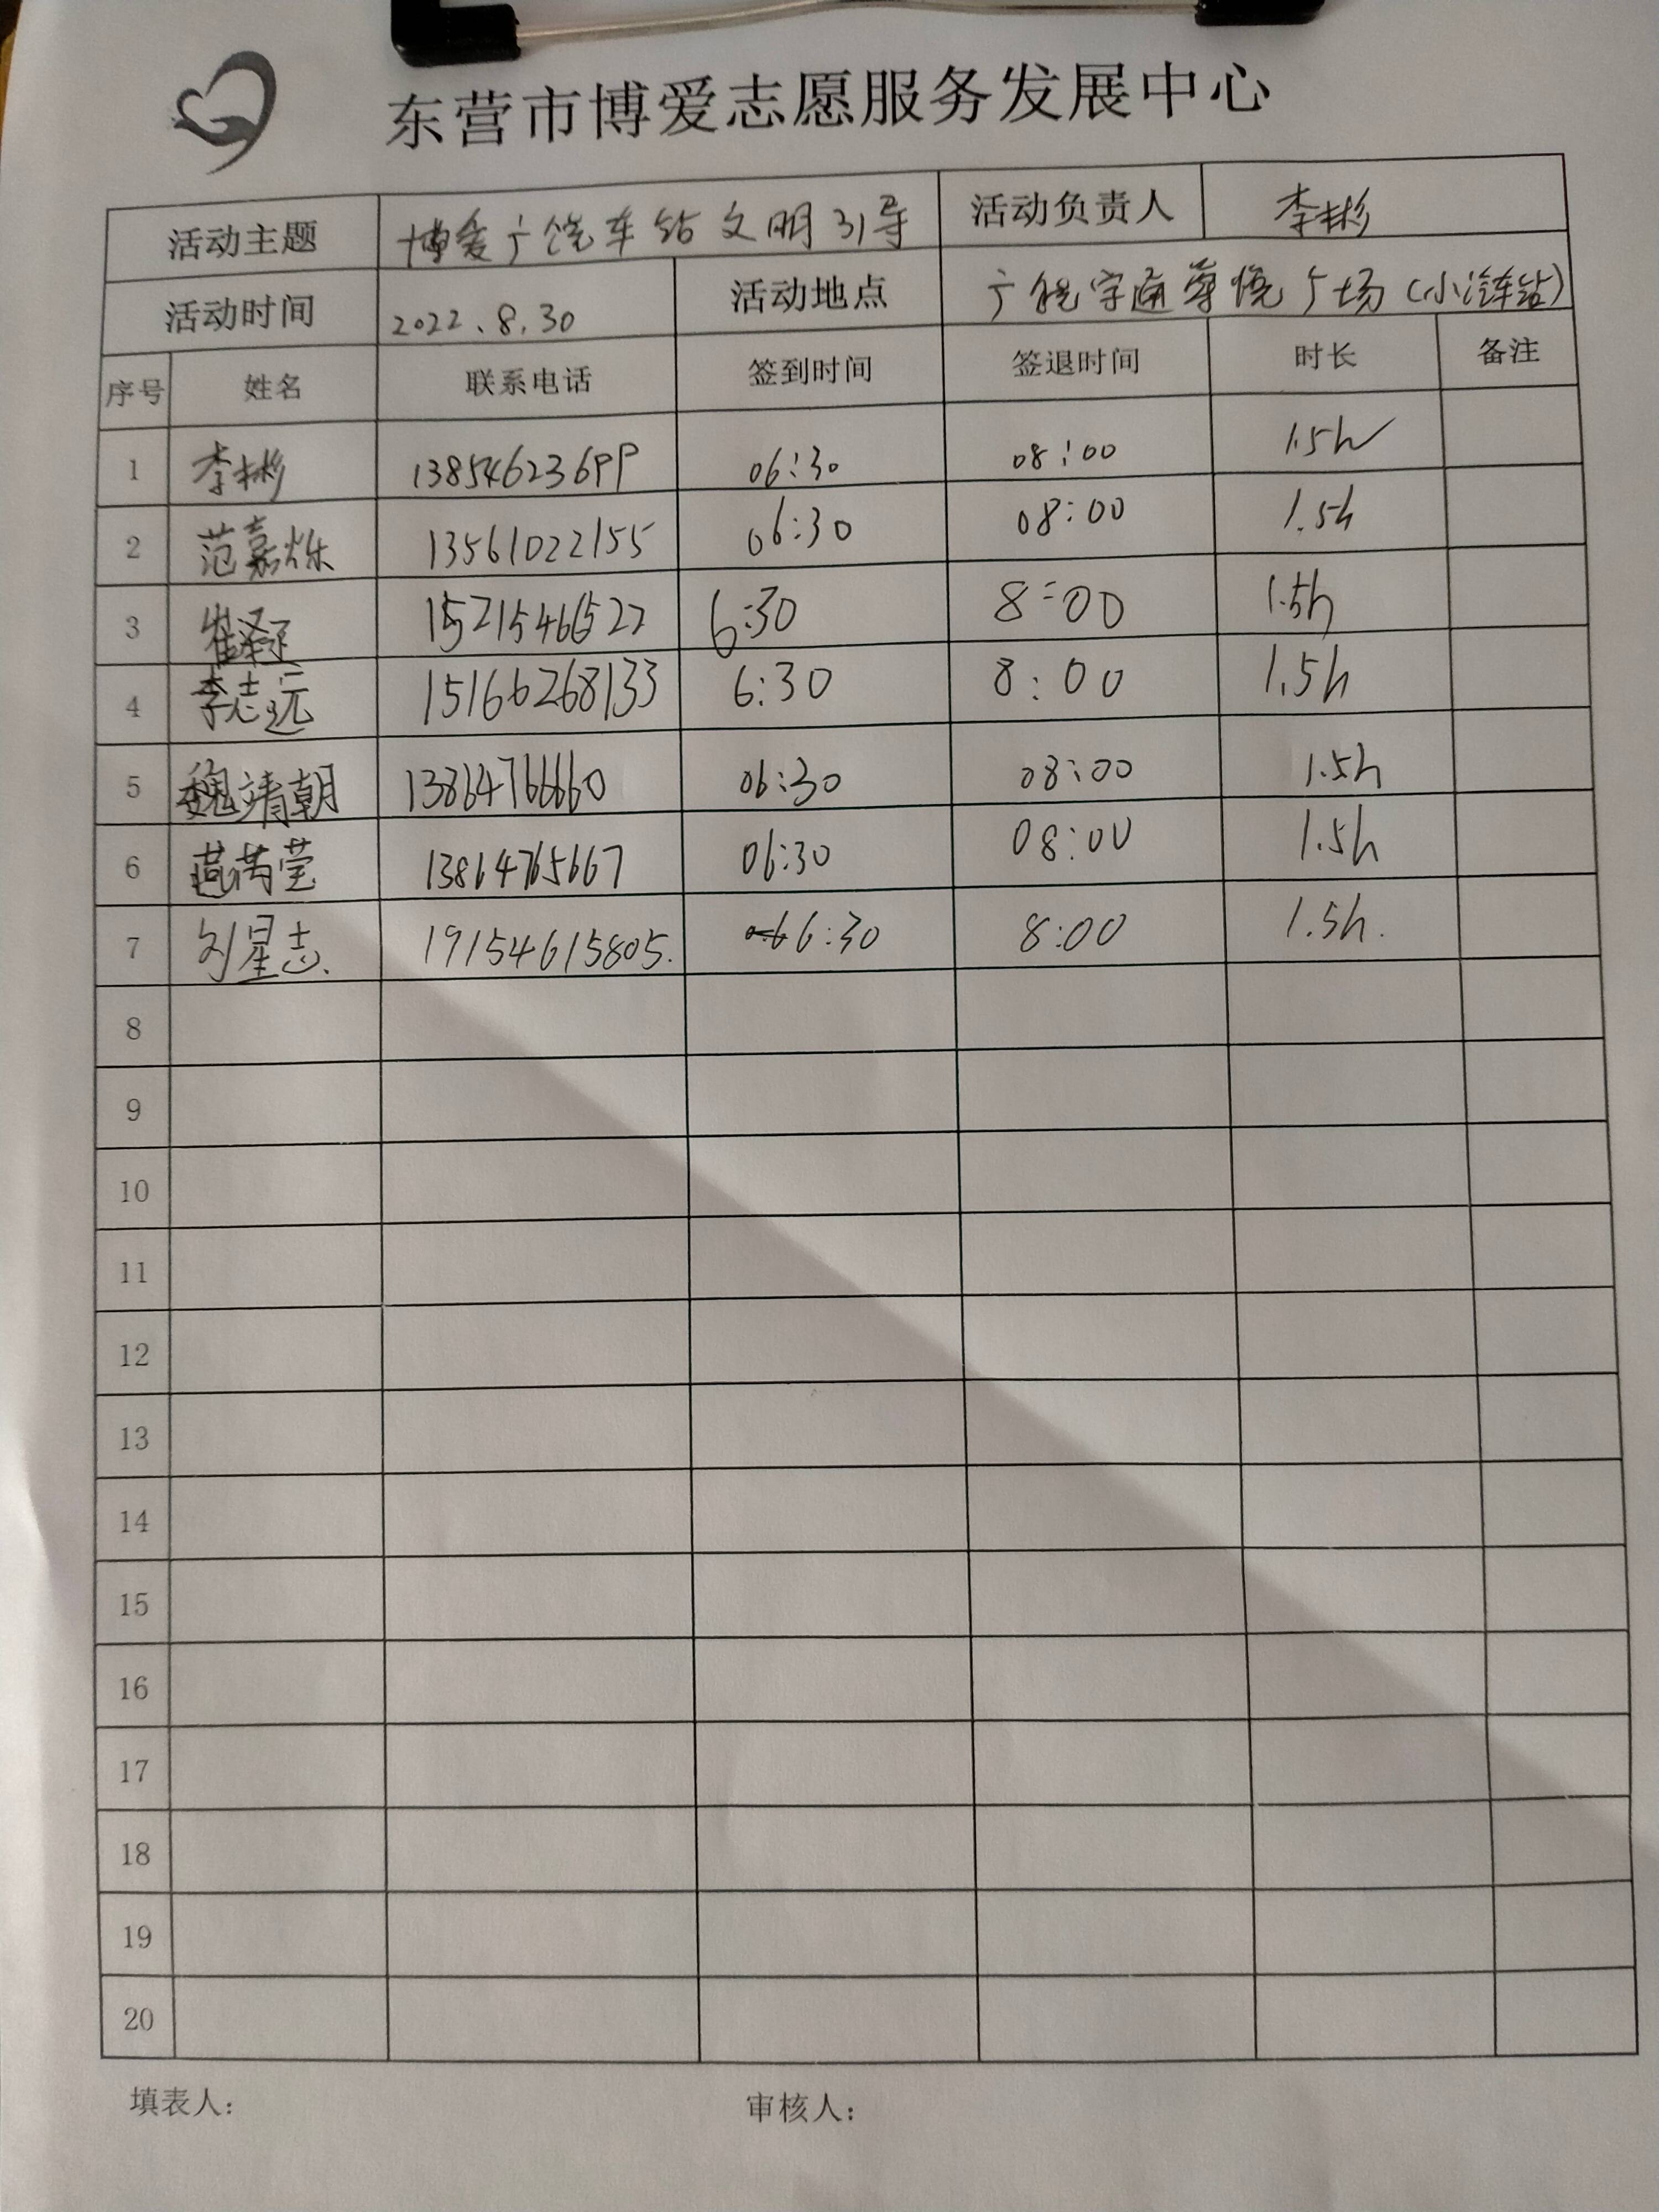 东营市博爱志愿服务发展中心
活动主题 博爱广饶车站文明引导 活动负责人 李彬
活动时间 2022.8.30 活动地点 广饶宇通尊悦广场(小汽车站)
序号 姓名 联系电话 签到时间 签退时间 时长 备注
1 李彬 13854623699 06:30 08:00 1.5h
2 范嘉烁 13561022155 06:30 08:00 1.5h
3 崔泽 15215466522 6:30 8:00 1.5h
4 李志远 15166268133 6:30 8:00 1.5h
5 魏靖朝 13864766660 06:30 08:00 1.5h
6 莹 13864765667 06:30 08:00 1.5h
7 刘星志. 19154615805. 6:30 8:00 1.5h.
8
9
10
11
12
13
14
15
16
17
18
19
20
填表人: 审核人: